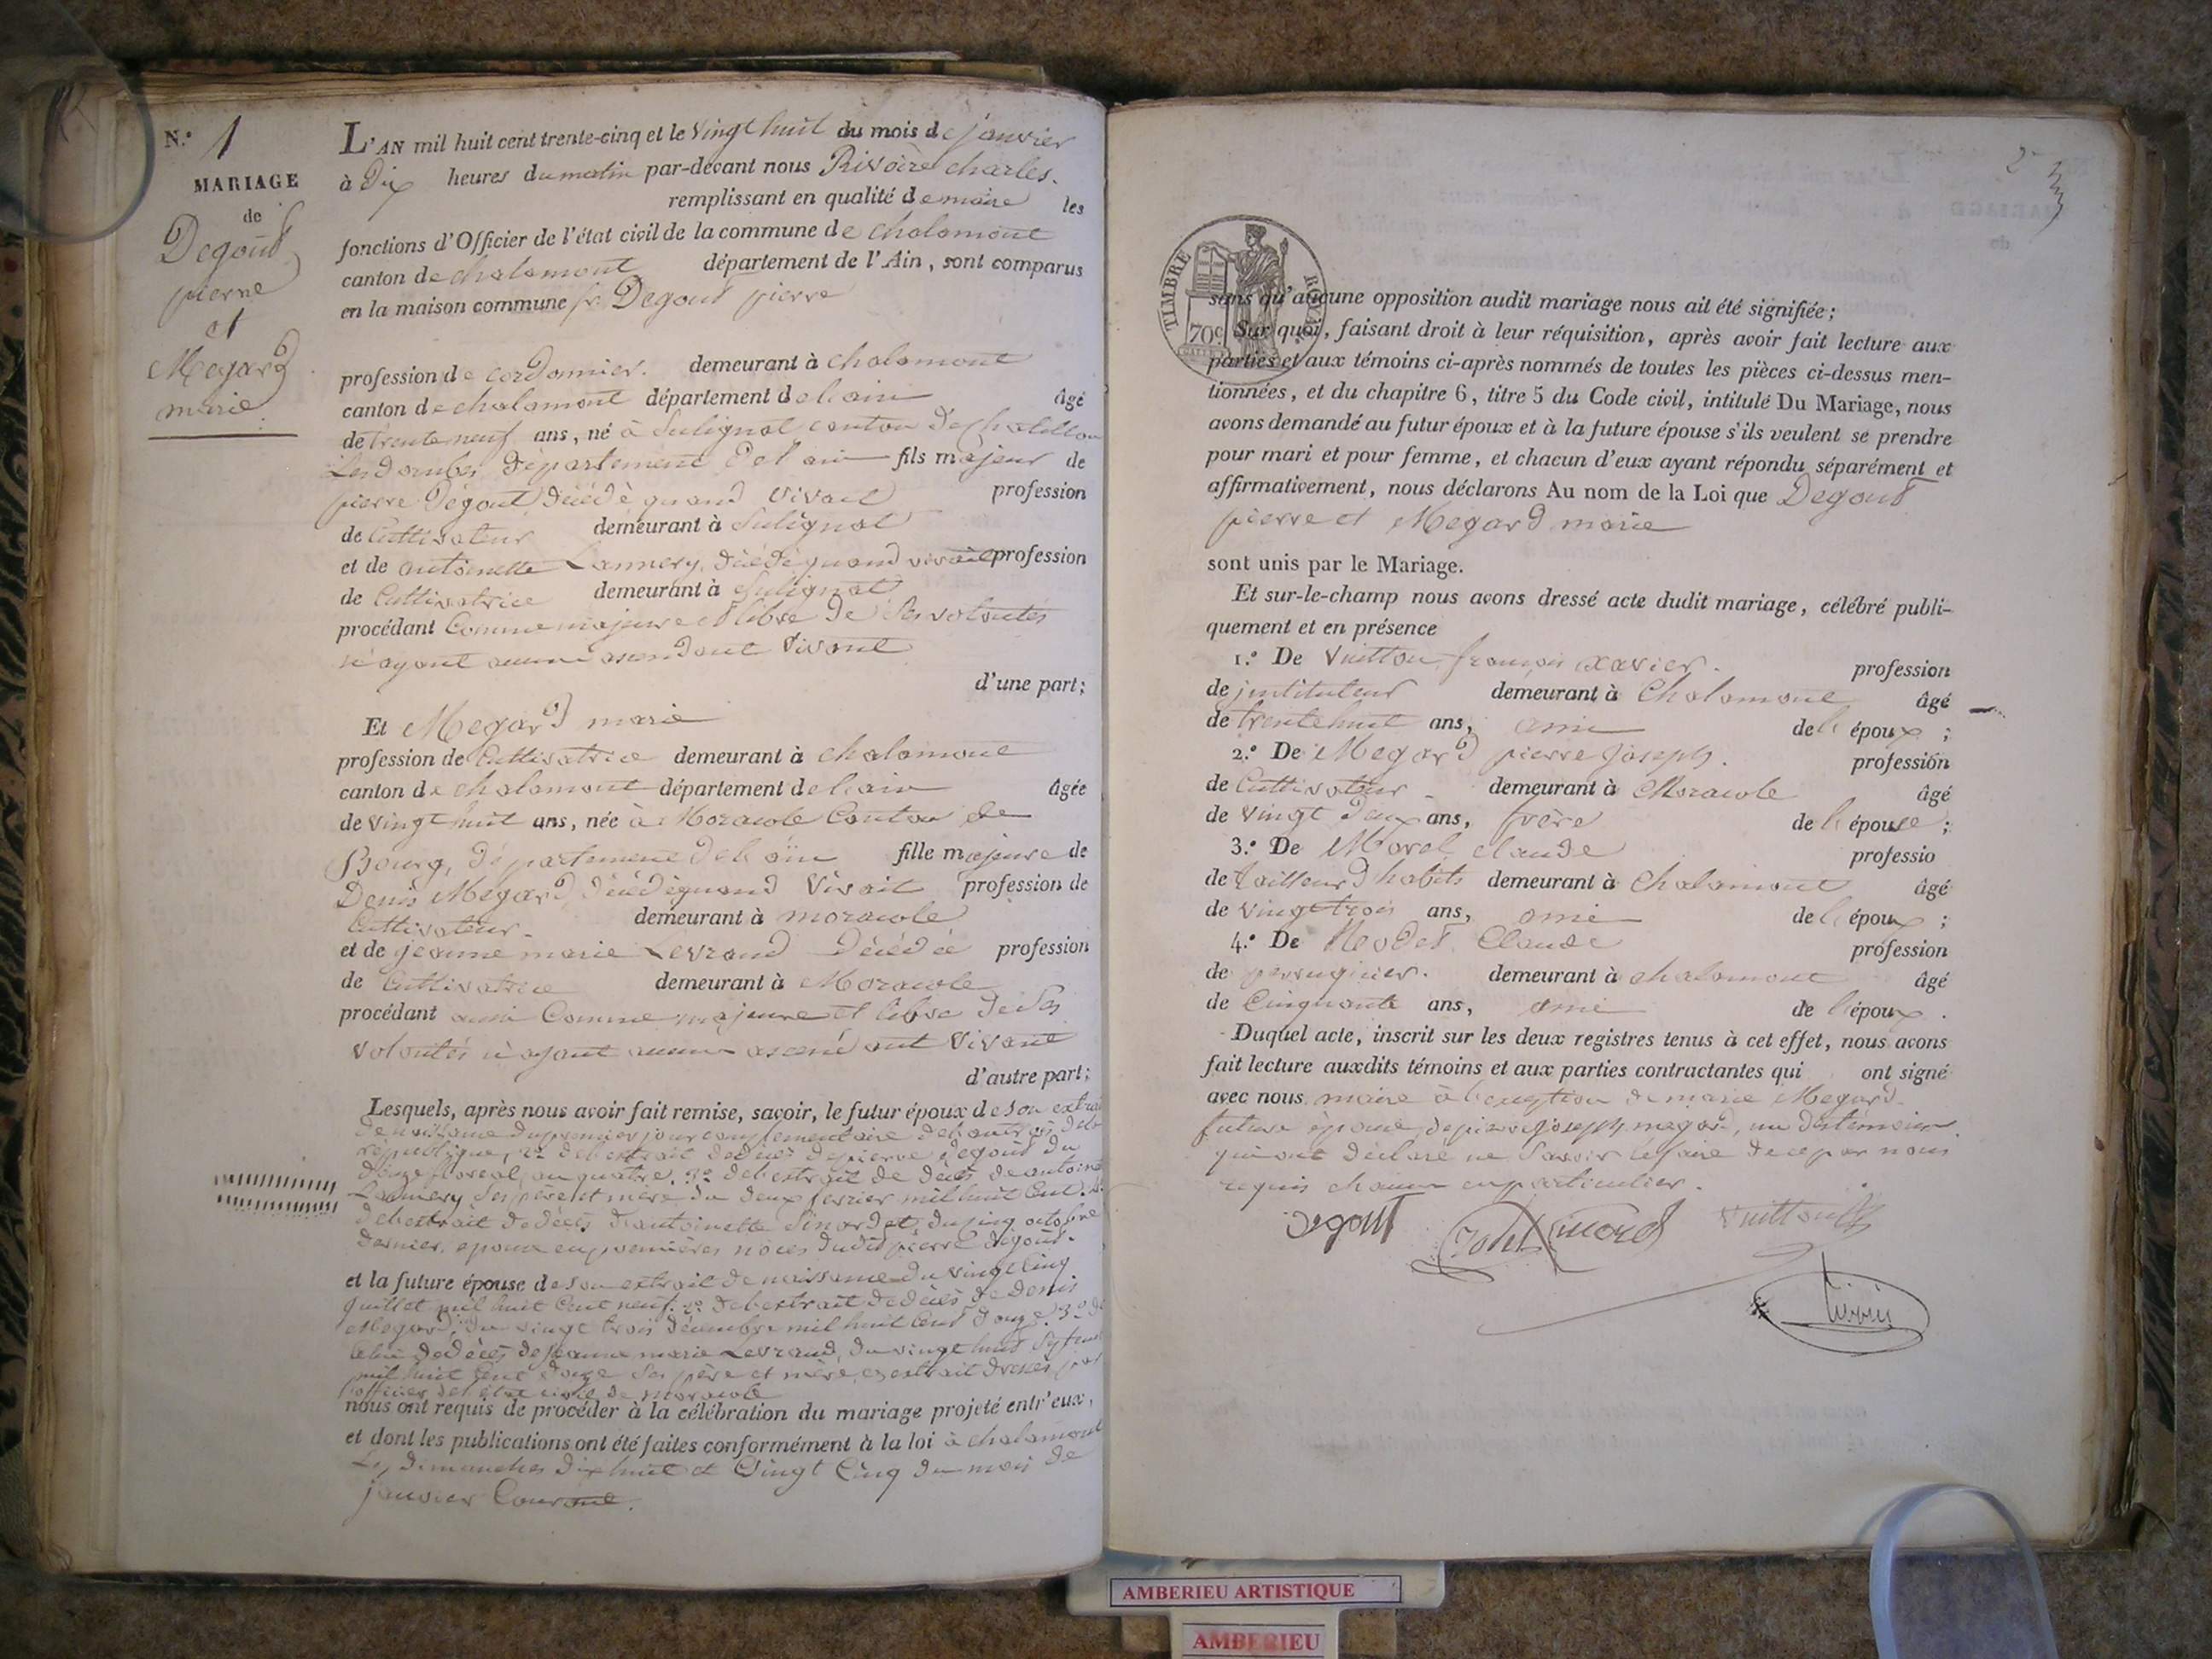 N.° 1
MARIAGE
de
Degout
pierre
et
Megard
marie
L'AN mil huit cent trente-cinq et le Vingt huit du mois de janvier
à Dix heures du matin par-devant nous Rivoire charles.
remplissant en qualité de maire les
fonctions d'Officier de l'état civil de la commune de chalamont
canton de chalamont département de l'Ain, sont comparus
en la maison commune Degout pierre
profession de cordonnier. demeurant à chalamont
canton de chalamont département de l'ain âgé
de trente neuf ans, né à Sulignat canton de Chatillon
Les dombes, Département de l'ain fils majeur de
pierre Dégout, décédé quand vivait profession
de Cultivateur demeurant à Sulignat
et de antoinette Lannery, décédé quand vivait profession
de Cultivatrice demeurant à Sulignat
procédant Comme majeure et libre de ses volontés
n'ayant aucun ascendant Vivant
d'une part;
Et Megard marie
profession de Cultivatrice demeurant à chalamont
canton de chalamont département de l'ain âgée
de vingt huit ans, née à Moracole Canton de
Bourg, département de l'ain fille majeure de
Denis Megard, décédé quand Vivait profession de
Cultivateur demeurant à moracole
et de jeanne marie Levrand Décédée profession
de Cultivatrice demeurant à Moracole
procédant aussi Comme majeure et libre de ses
volontés n'ayant aucun ascendant Vivant
d'autre part;
Lesquels, après nous avoir fait remise, savoir, le futur époux de son extrait
de naissance du premier jour complémentaire de l'an trois de la
république, 2° de l'extrait de décès de pierre degout du
floreal, an quatre. 3° de l'extrait de décès de antoinette
Lannery ses père et mère du deux fevrier mil huit Cent. 4°
de l'extrait de décès d'antoinette Sinardet, du cinq octobre
dernier, epouse en premières noces dudit pierre degout.
et la future épouse de son extrait de naissance du vingt cinq
juillet mil huit Cent neuf. 2° de l'extrait de décès de Denis
Megard, du vingt trois décembre mil huit Cent douze. 3° de
celui de décès de jeanne marie Levrand, du vingt huit
mil huit Cent douze ses père et mère, extrait dressés par
l'officier de l'état civil de moracole
nous ont requis de procéder à la célébration du mariage projeté entr'eux,
et dont les publications ont été faites conformément à la loi à chalamont
Les dimanches dix huit et Vingt Cinq du mois de
janvier Courant.
2
TIMBRE ROYAL
70c
sans qu'aucune opposition audit mariage nous ait été signifiée;
Sur quoi, faisant droit à leur réquisition, après avoir fait lecture aux
parties et aux témoins ci-après nommés de toutes les pièces ci-dessus men-
tionnées, et du chapitre 6, titre 5 du Code civil, intitulé Du Mariage, nous
avons demandé au futur époux et à la future épouse s'ils veulent se prendre
pour mari et pour femme, et chacun d'eux ayant répondu séparément et
affirmativement, nous déclarons Au nom de la Loi que Degout
pierre et Megard marie
sont unis par le Mariage.
Et sur-le-champ nous avons dressé acte dudit mariage, célébré publi-
quement et en présence
1.° De Vuitton françois xavier. profession
de jnstituteur demeurant à Chalamont âgé
de trente huit ans, ami de l'époux;
2.° De Megard pierre joseph. profession
de Cultivateur demeurant à Moracole âgé
de vingt deux ans, frère de l'épouse;
3.° De Morel claude professio
de tailleur d'habits demeurant à Chalamont âgé
de vingt trois ans, ami de l'époux;
4.° De Claude profession
de perruquier. demeurant à chalamont âgé
de Cinquante ans, ami de l'époux.
Duquel acte, inscrit sur les deux registres tenus à cet effet, nous avons
fait lecture auxdits témoins et aux parties contractantes qui ont signé
avec nous maire à l'exception de marie Megard
future épouse, de pierre joseph megard, un des témoins
qui ont déclaré ne savoir le faire de ce par nous
requis chacun en particulier.
Degout Vuitton
AMBERIEU ARTISTIQUE
AMBERIEU